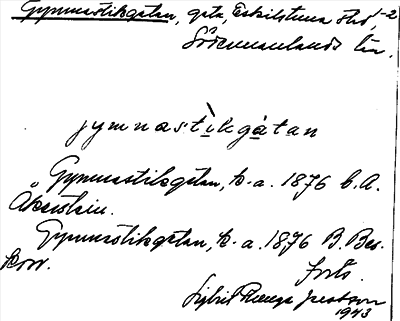 Gymnastikgatan, gata, Eskilstuna stad,
Södermanlands län.
jymnastìkgàtan
"Gymnastikgatan, k. a. 1876 C. A.
Åkerstein.
Gymnastikgatan, k. a. 1876 B. Bes-
kow.
Forts.
Sigbrit
1943